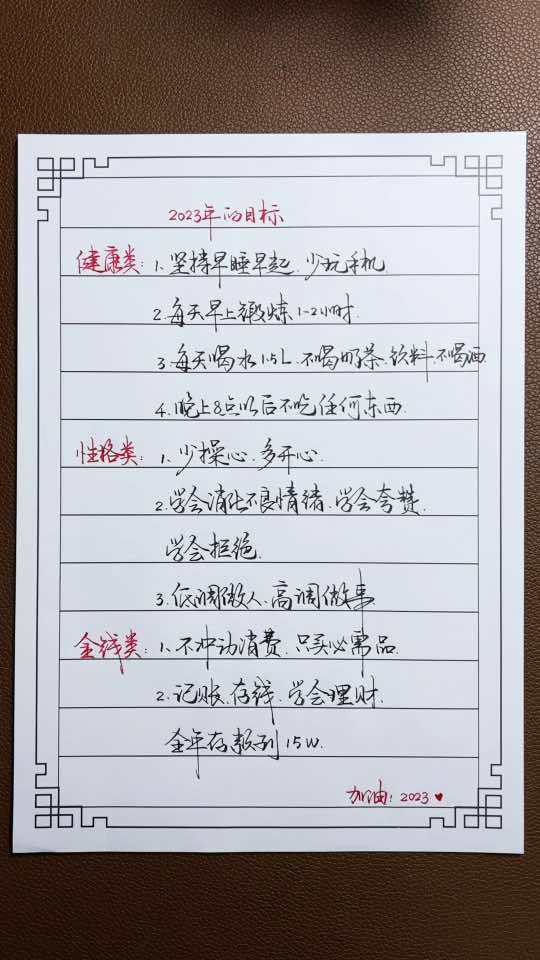 2023年的目标
健康类：1、坚持早睡早起、少玩手机
2、每天早上锻炼、1-2小时.
3、每天喝水1.5L、不喝奶茶、饮料、不喝酒
4、晚上8点以后不吃任何东西.
性格类：1、少操心、多开心.
2、学会消化不良情绪、学会夸赞.
学会拒绝.
3、低调做人、高调做事
金钱类：1、不冲动消费、只买必需品.
2、记账、存钱、学会理财.
全年存款到15W.
加油：2023♥